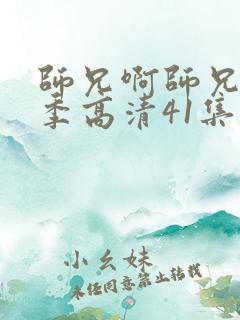 師兄啊師兄
季高清41集
小幺妹
未经同意禁止转载